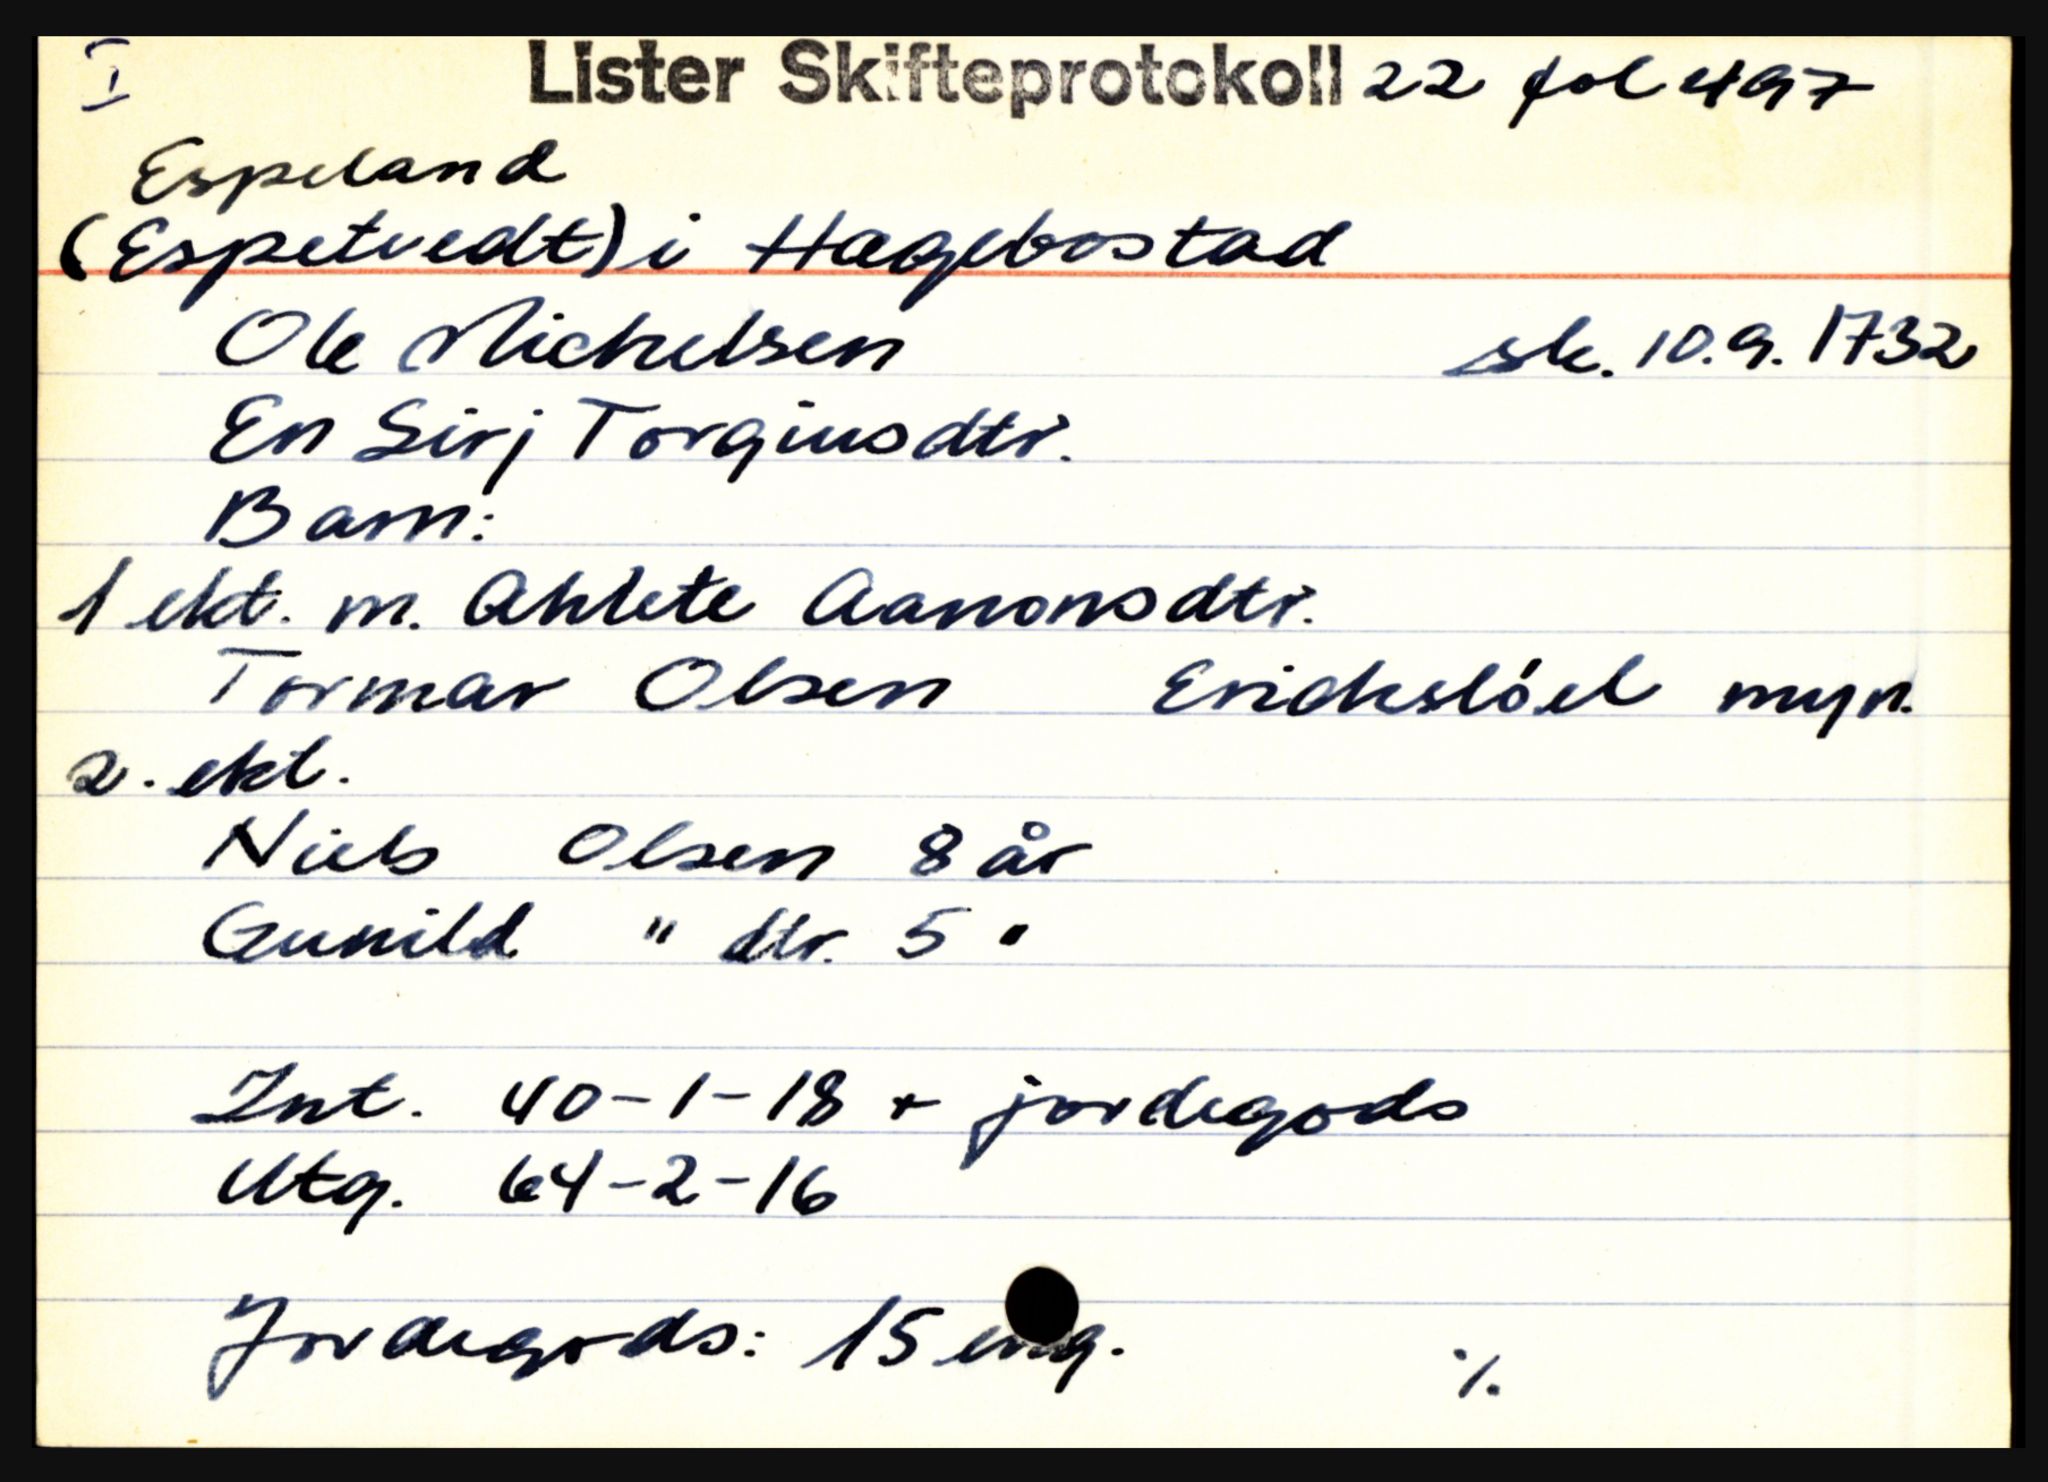 I Lister Skifteprotokoll 22 fol 497
Espeland
(Espetvedt) i Hægebostad
Ole Michelsen sk. 10.9.1732
En Sirj Torgiusdtr.
Barn:
1 ekt. m. Ahlete Aanonsdtr.
Tormar Olsen Erichslöel myn.
2. ekt.
Niels Olsen 8 år
Gunild " dtr. 5 "
Int. 40-1-18 + jordegods
Utg. 64-2-16
Jordegods: 15 eng.
./.